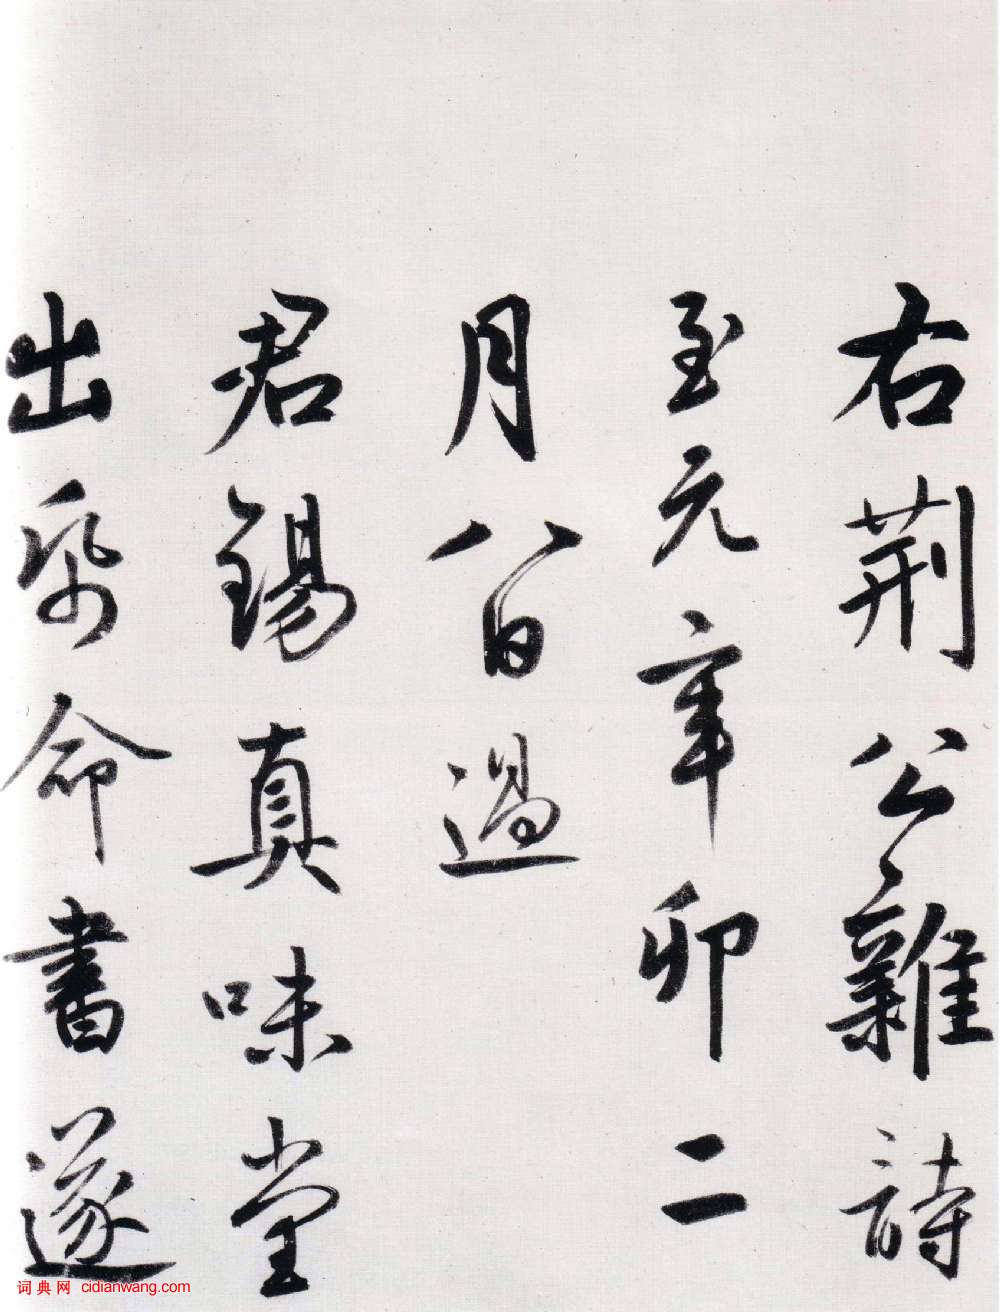 右荆公雜詩
至元辛卯二
月八日過
君錫真味堂
出紙命書遂
词典网 cidianwang.com